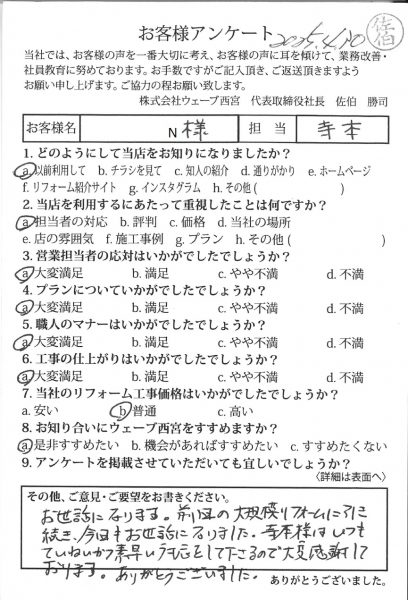 お客様アンケート 2025.4.20 佐伯
当社では、お客様の声を一番大切に考え、お客様の声に耳を傾けて、業務改善・
社員教育に努めております。お手数ですがご記入頂き、ご返送頂きますよう
お願い申し上げます。ご協力の程お願い致します。
株式会社ウェーブ西宮 代表取締役社長 佐伯 勝司
お客様名 N 様 担当 寺本
1. どのようにして当店をお知りになりましたか？
a. 以前利用して b. チラシを見て c. 知人の紹介 d. 通りがかり e. ホームページ
f. リフォーム紹介サイト g. インスタグラム h. その他 ( )
2. 当店を利用するにあたって重視したことは何ですか？
a. 担当者の対応 b. 評判 c. 価格 d. 当社の場所
e. 店の雰囲気 f. 施工事例 g. プラン h. その他 ( )
3. 営業担当者の応対はいかがでしたでしょうか？
a. 大変満足 b. 満足 c. やや不満 d. 不満
4. プランについていかがでしたでしょうか？
a. 大変満足 b. 満足 c. やや不満 d. 不満
5. 職人のマナーはいかがでしたでしょうか？
a. 大変満足 b. 満足 c. やや不満 d. 不満
6. 工事の仕上がりはいかがでしたでしょうか？
a. 大変満足 b. 満足 c. やや不満 d. 不満
7. 当社のリフォーム工事価格はいかがでしたでしょうか？
a. 安い b. 普通 c. 高い
8. お知り合いにウェーブ西宮をすすめますか？
a. 是非すすめたい b. 機会があればすすめたい c. すすめたくない
9. アンケートを掲載させていただいても宜しいでしょうか？
〈詳細は表面へ〉
その他、ご意見・ご要望をお書きください。
お世話になります。前回の大規模リフォームに引き
続き、今回もお世話になりました。寺本様はいつも
ていねいかつ素早い対応をして下さるので大変感謝して
おります。ありがとうございました。
ありがとうございました。